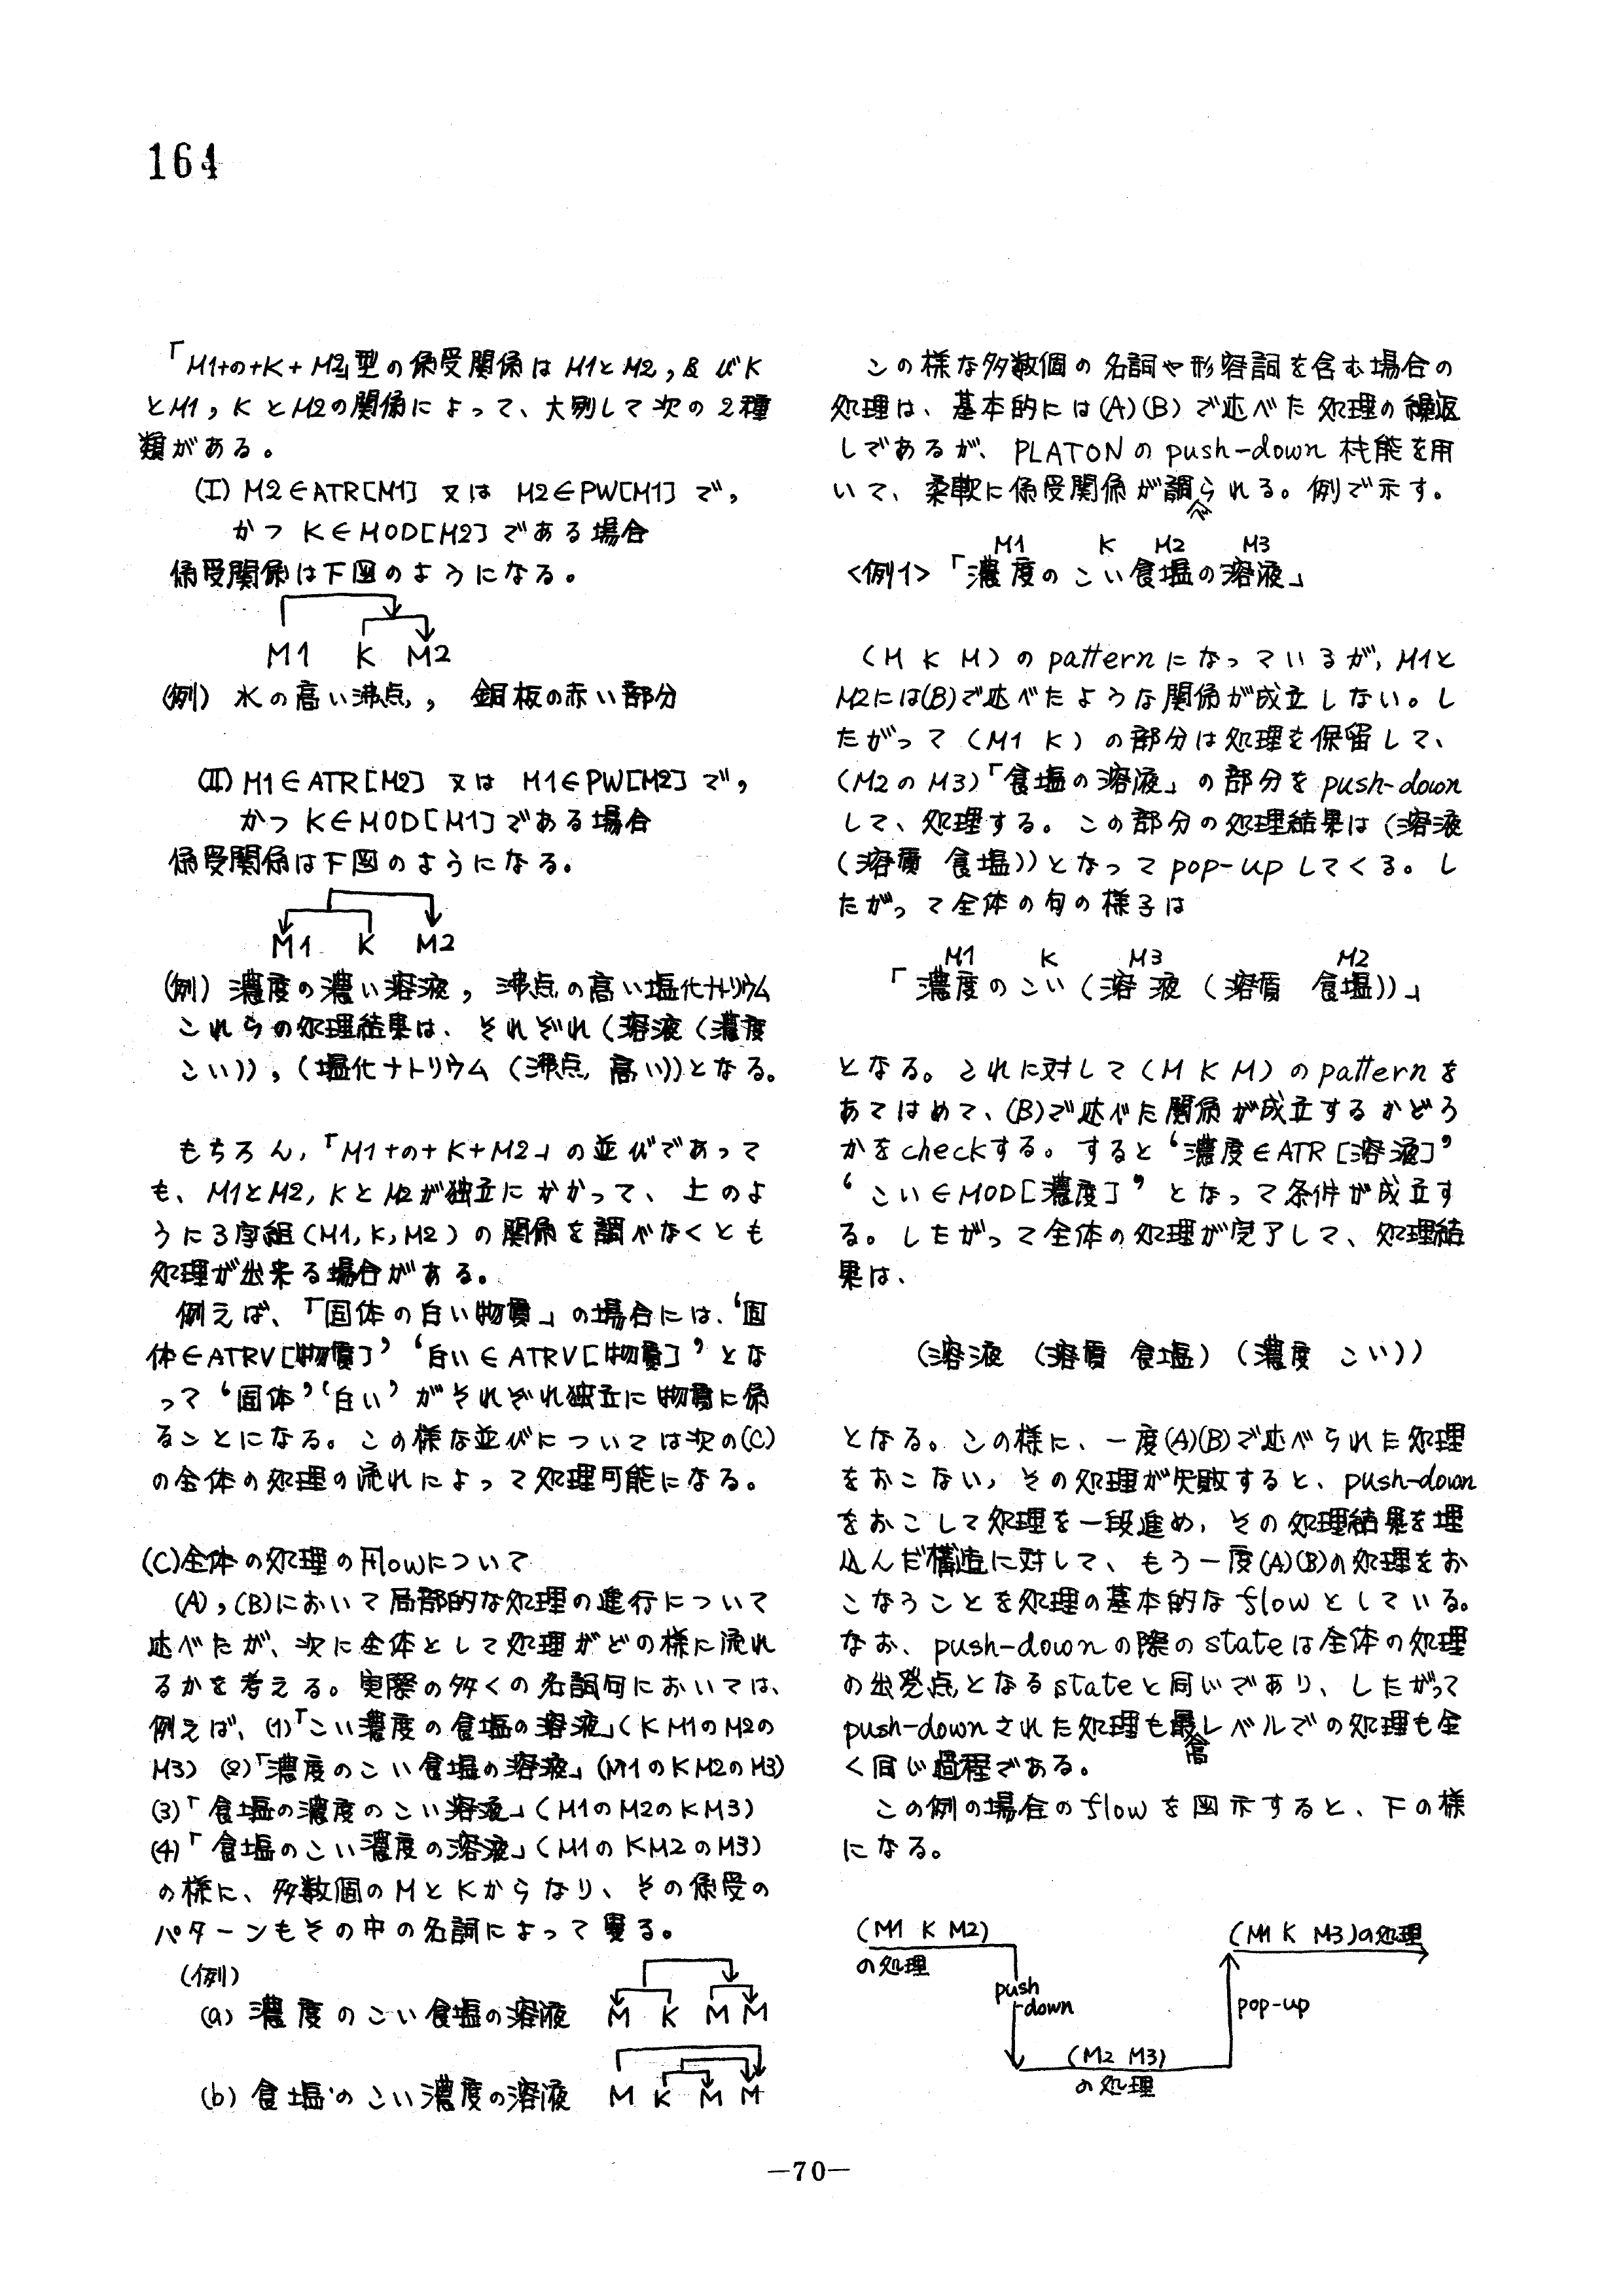 164
「M1+の+K+M2」型の係受関係はM1とM2,及びK
とM1,KとM2の関係によって、大別して次の2種
類がある。
(I) M2∈ATR[M1] 又は M2∈PW[M1] で,
かつ K∈MOD[M2] である場合
係受関係は下図のようになる。
M1 K M2
(例) 水の高い沸点, 銅板の赤い部分
(II) M1∈ATR[M2] 又は M1∈PW[M2] で,
かつ K∈MOD[M1] である場合
係受関係は下図のようになる。
M1 K M2
(例) 濃度の濃い溶液, 沸点の高い塩化ナトリウム
これらの処理結果は、それぞれ(溶液(濃度
こい)),(塩化ナトリウム(沸点 高い))となる。
もちろん,「M1+の+K+M2」の並びであって
も、M1とM2,KとM2が独立にかかって、上のよ
うに3字組(M1,K,M2)の関係を調べなくとも
処理が出来る場合がある。
例えば、「固体の白い物質」の場合には、‘固
体∈ATRV[物質]’‘白い∈ATRV[物質]’とな
って‘固体’‘白い’がそれぞれ独立に物質に係
ることになる。この様な並びについては次の(C)
の全体の処理の流れによって処理可能になる。
(C)全体の処理のFlowについて
(A),(B)において局部的な処理の進行について
述べたが、次に全体として処理がどの様に流れ
るかを考える。実際の多くの名詞句においては、
例えば、(1)「こい濃度の食塩の溶液」(K M1のM2の
M3) (2)「濃度のこい食塩の溶液」(M1のKM2のM3)
(3)「食塩の濃度のこい溶液」(M1のM2のKM3)
(4)「食塩のこい濃度の溶液」(M1のKM2のM3)
の様に、多数個のMとKからなり、その係受の
パターンもその中の名詞によって異る。
(例)
(a) 濃度のこい食塩の溶液 M K M M
(b) 食塩のこい濃度の溶液 M K M M
この様な多数個の名詞や形容詞を含む場合の
処理は、基本的には(A)(B)で述べた処理の繰返
しであるが、PLATONのpush-down機能を用
いて、柔軟に係受関係が調べられる。例で示す。
M1 K M2 M3
<例1>「濃度のこい食塩の溶液」
(M K M)のpatternになっているが,M1と
M2には(B)で述べたような関係が成立しない。し
たがって(M1 K)の部分は処理を保留して、
(M2のM3)「食塩の溶液」の部分をpush-down
して、処理する。この部分の処理結果は(溶液
(溶質 食塩))となってpop-upしてくる。し
たがって全体の句の様子は
M1 K M3 M2
「濃度のこい(溶液(溶質 食塩))」
となる。これに対して(M K M)のpatternを
あてはめて、(B)で述べた関係が成立するかどう
かをcheckする。すると‘濃度∈ATR[溶液]’
‘こい∈MOD[濃度]’となって条件が成立す
る。したがって全体の処理が完了して、処理結
果は、
(溶液 (溶質 食塩) (濃度 こい))
となる。この様に、一度(A)(B)で述べられた処理
をおこない,その処理が失敗すると、push-down
をおこして処理を一段進め,その処理結果を埋
込んだ構造に対して、もう一度(A)(B)の処理をお
こなうことを処理の基本的なflowとしている。
なお、push-downの際のstateは全体の処理
の出発点となるstateと同じであり、したがって
push-downされた処理も最高レベルでの処理も全
く同じ過程である。
この例の場合のflowを図示すると、下の様
になる。
(M1 K M2)
の処理
push
-down
(M2 M3)
の処理
pop-up
(M1 K M3)の処理
—70—